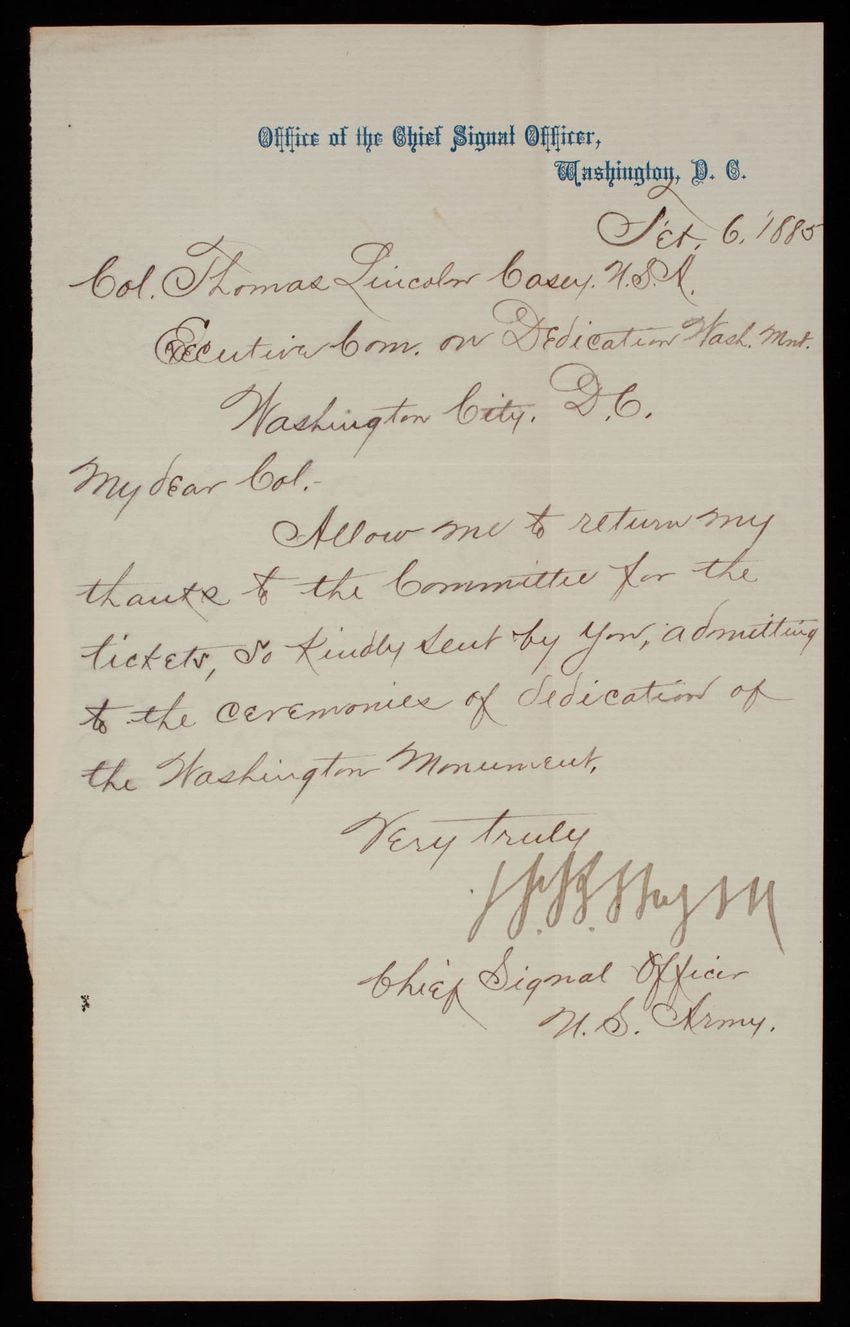 Office of the Chief Signal Officer,
Washington, D. C.
Feb. 6, 1885
Col. Thomas Lincoln Casey. U.S.A.
Executive Com. on Dedication Wash. Mnt.
Washington City. D.C.
My dear Col.-
Allow me to return my
thanks to the Committee for the
tickets, so kindly sent by you, admitting
to the ceremonies of dedication of
the Washington Monument.
Very truly
Chief Signal Officer
U. S. Army.